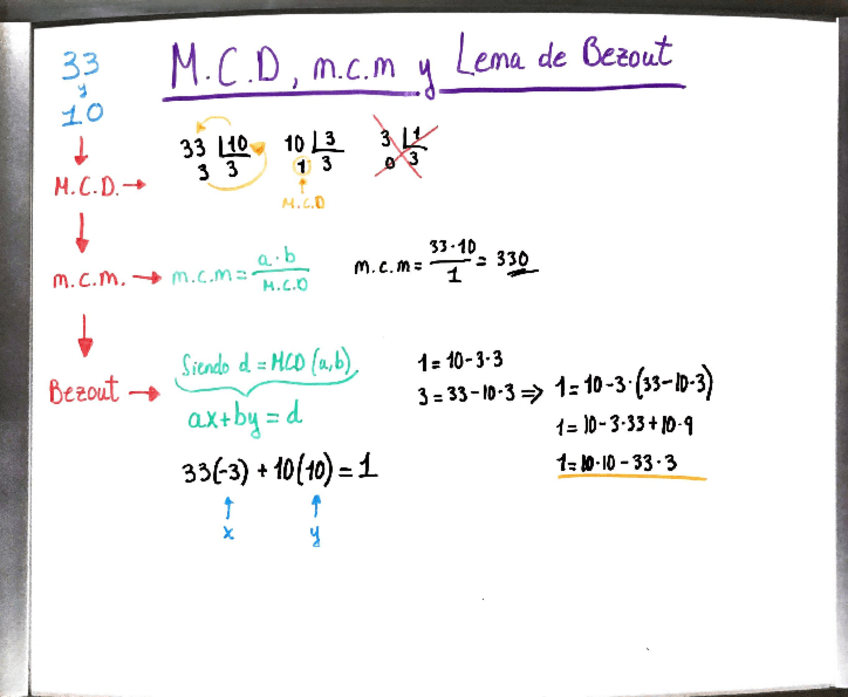 M.C.D, m.c.m y Lema de Bezout
33
y
10
M.C.D. →
33 |10
3 3
10 |3
1 3
M.C.D
3 |1
0 3
m.c.m. → m.c.m = a·b / M.C.D
m.c.m = 33·10 / 1 = 330
Bezout →
Siendo d = MCD (a,b)
ax+by = d
33(-3) + 10(10) = 1
x
y
1 = 10-3·3
3 = 33-10·3 ⇒ 1 = 10-3·(33-10·3)
1 = 10-3·33+10·9
1 = 10·10-33·3